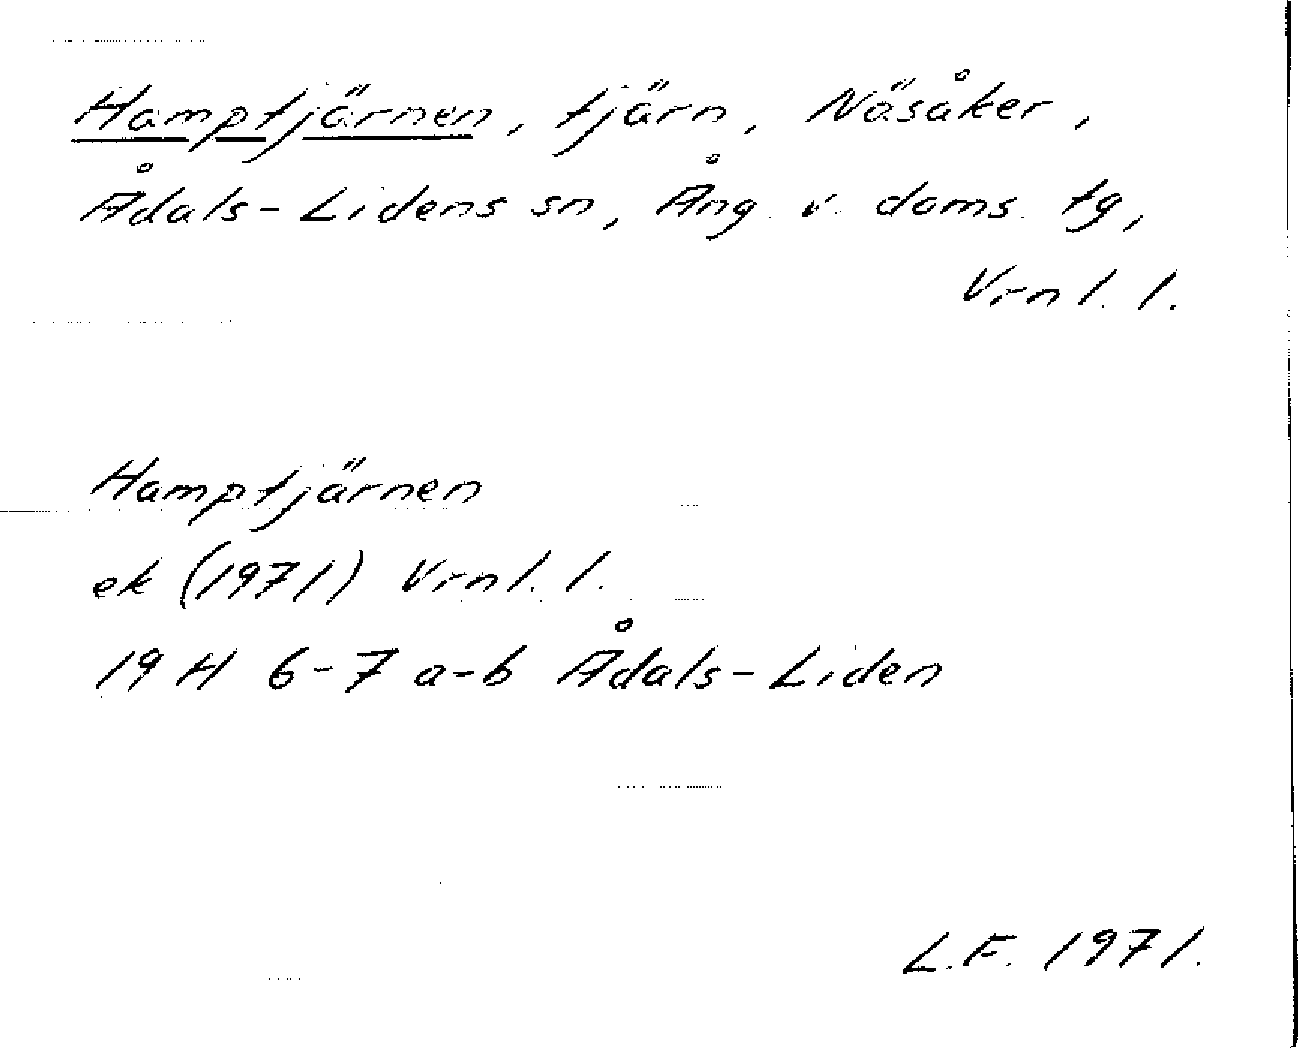 Hamptjärnen, tjärn, Näsåker,
Ådals-Lidens sn, Ång. v. doms. tg,
Vrnl. l.
Hamptjärnen
ek (1971) Vrnl. l.
19 H 6-7 a-b Ådals-Liden
L.F. 1971.